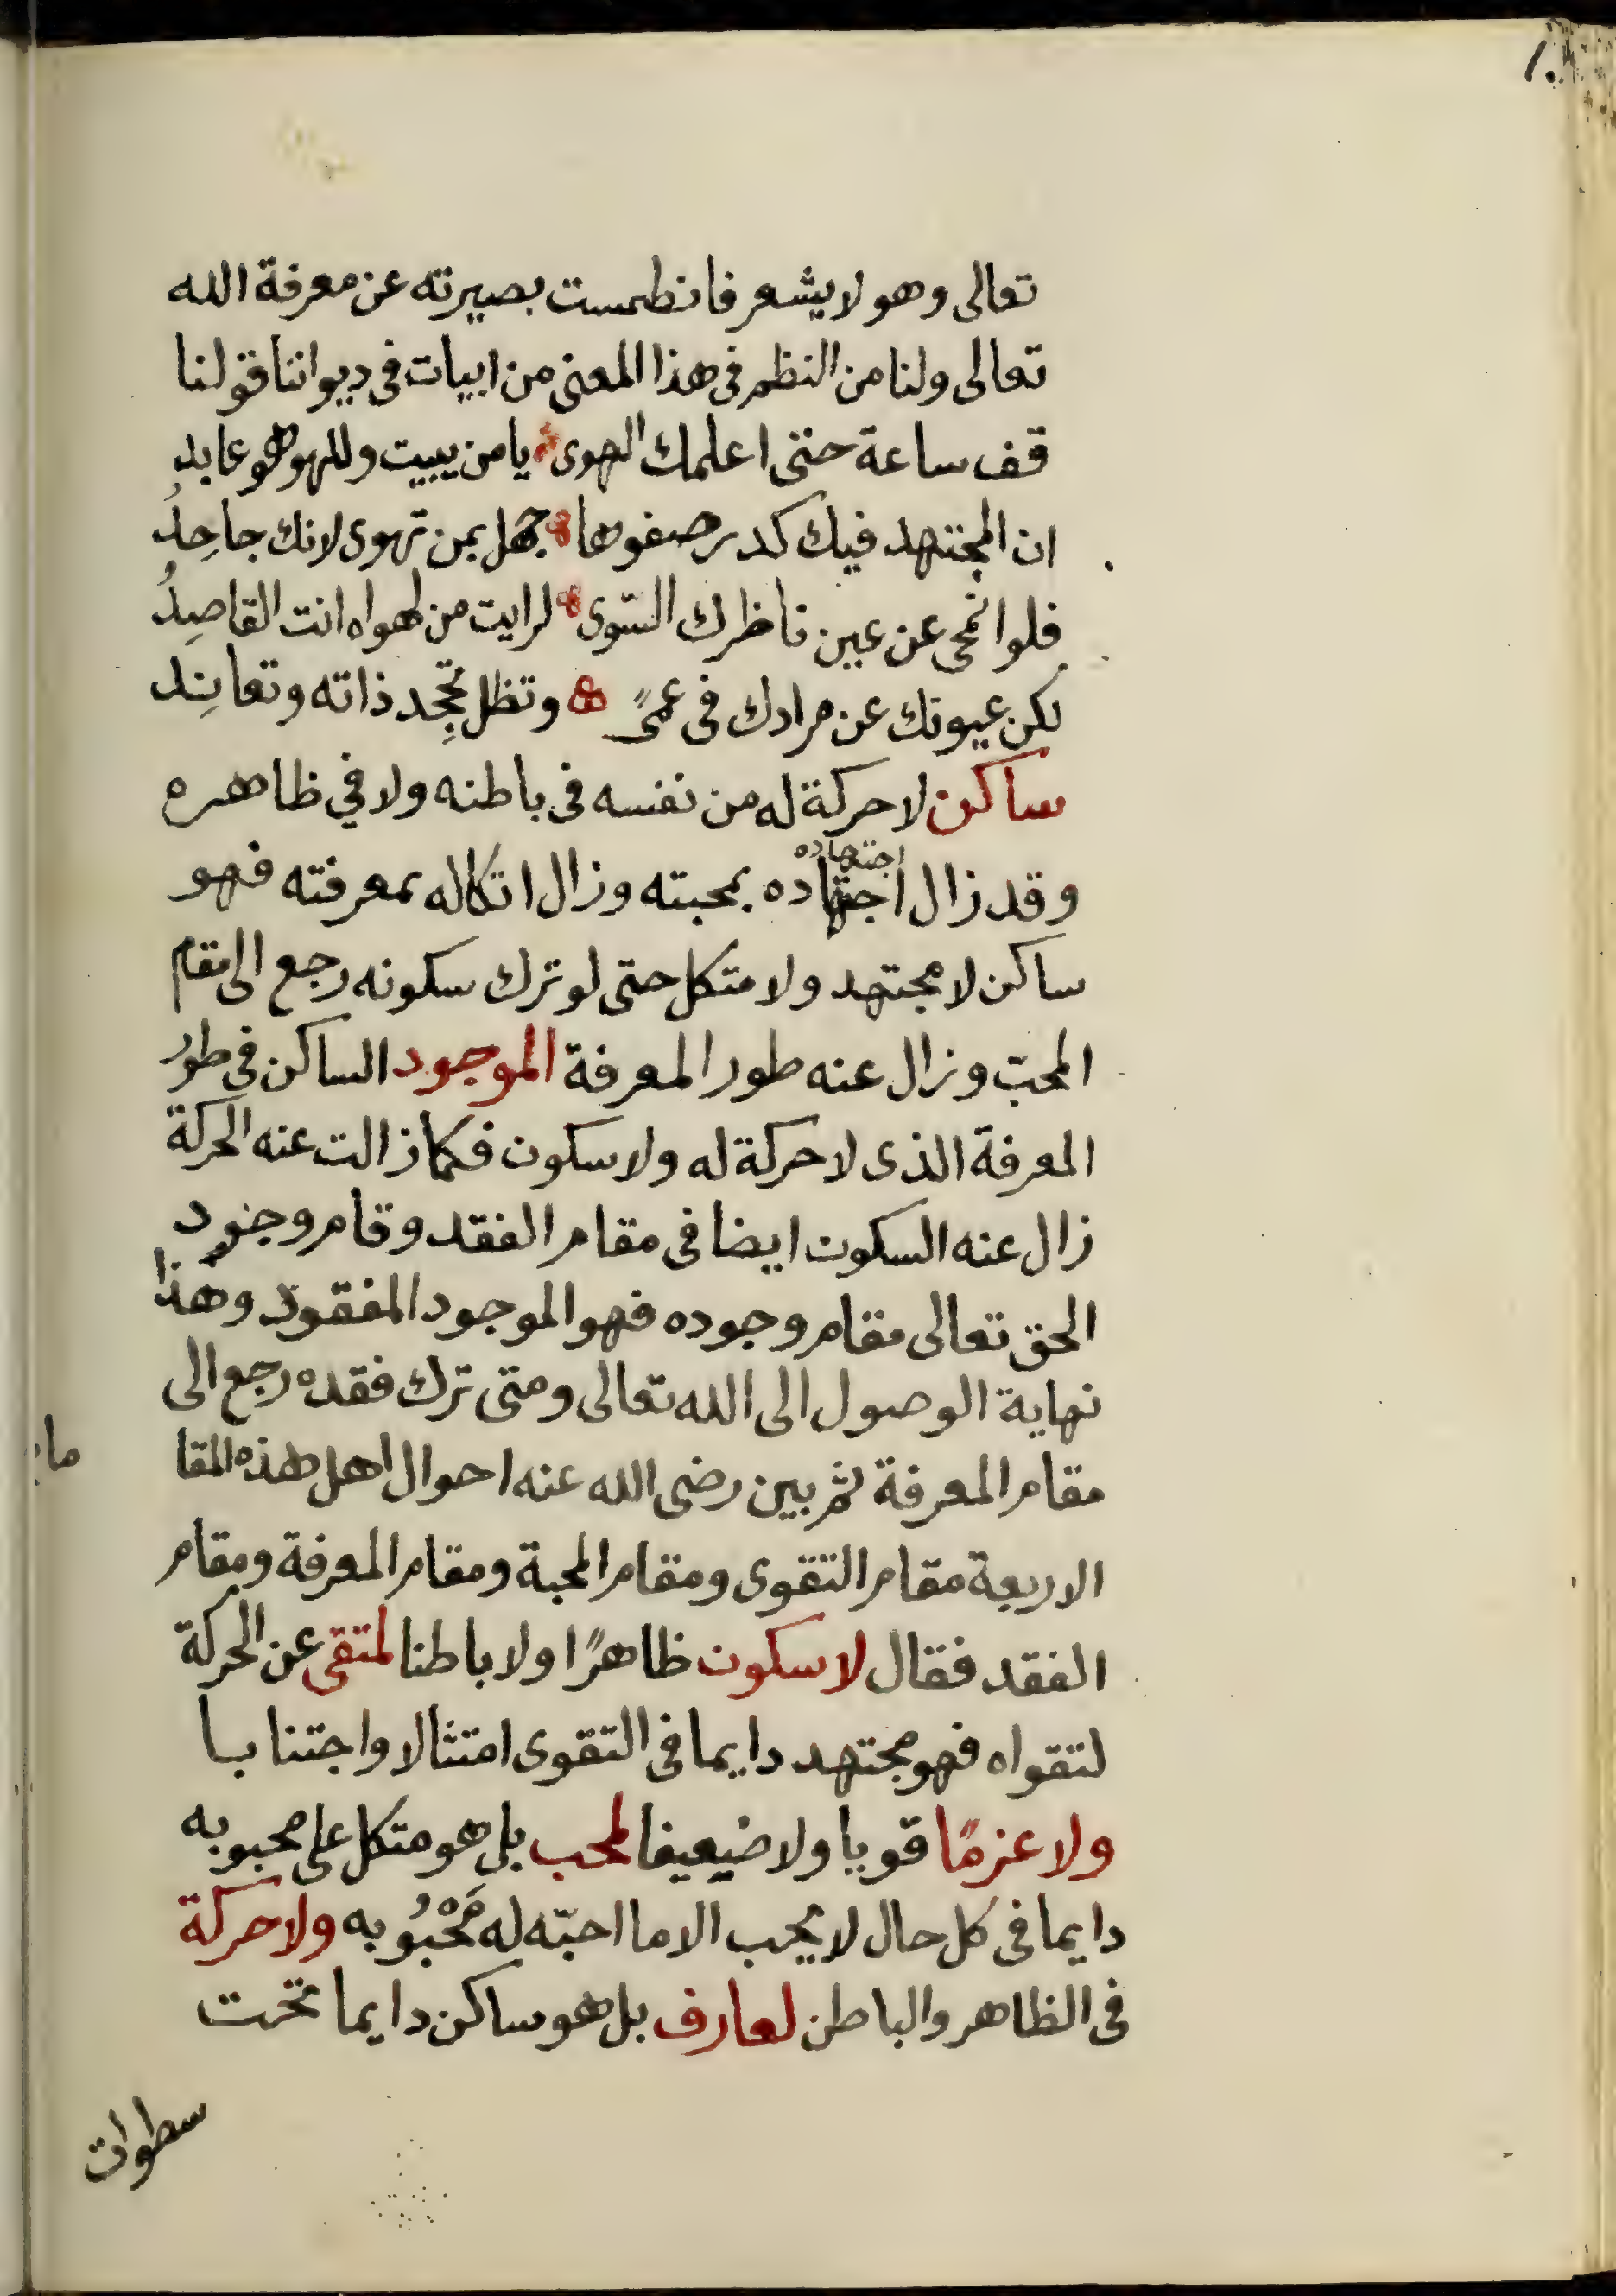 ١٠
تعالى وهو لا يشعر فانطمست بصيرته عن معرفة الله
تعالى ولنا من النظم فى هذا المعنى من ابيات فى ديواننا قولنا
قف ساعة حتى اعلمك الهوى يا من يبيت وللهو هو عابد
ان المجتهد فيك كدر صفوها جهل بمن تهوى لانك جاحِدُ
فلو انمحى عن عين ناظرك السّوى لرايت من لهواه انت القاصِدُ
لكن عيونك عن مرادك فى عمىً وتظل تجحِد ذاته وتعانِد
ساكن لا حركة له من نفسه فى باطنه ولا في ظاهره
وقد زال اجتهاده بمحبته وزال اتكاله بمعرفته فهو
اجتهاده
ساكن لا مجتهد ولا متكل حتى لو ترك سكونه رجع الى مقام
المحبّ وزال عنه طور المعرفة الموجود الساكن فى طور
المعرفة الذى لا حركة له ولا سكون فكما زالت عنه الحركة
زال عنه السكون ايضا فى مقام الفقد وقام وجود
الحق تعالى مقام وجوده فهو الموجود المفقود وهذا
نهاية الوصول الى الله تعالى ومتى ترك فقده رجع الى
مقام المعرفة ثم بين رضى الله عنه احوال اهل هذه المقا
الاربعة مقام التقوى ومقام المحبة ومقام المعرفة ومقام
الفقد فقال لا سكون ظاهرًا ولا باطنا لمتقى عن الحركة
لتقواه فهو مجتهد دايما فى التقوى امتثالا واجتنابا
ولا عزمًا قويا ولا ضيعيفا لمحب بل هو متكل على محبوبه
دايما فى كل حال لا يحب الا ما احبّه له مَحْبُوُبه ولا حركة
فى الظاهر والباطن لعارف بل هو ساكن دايما تحت
سطوات